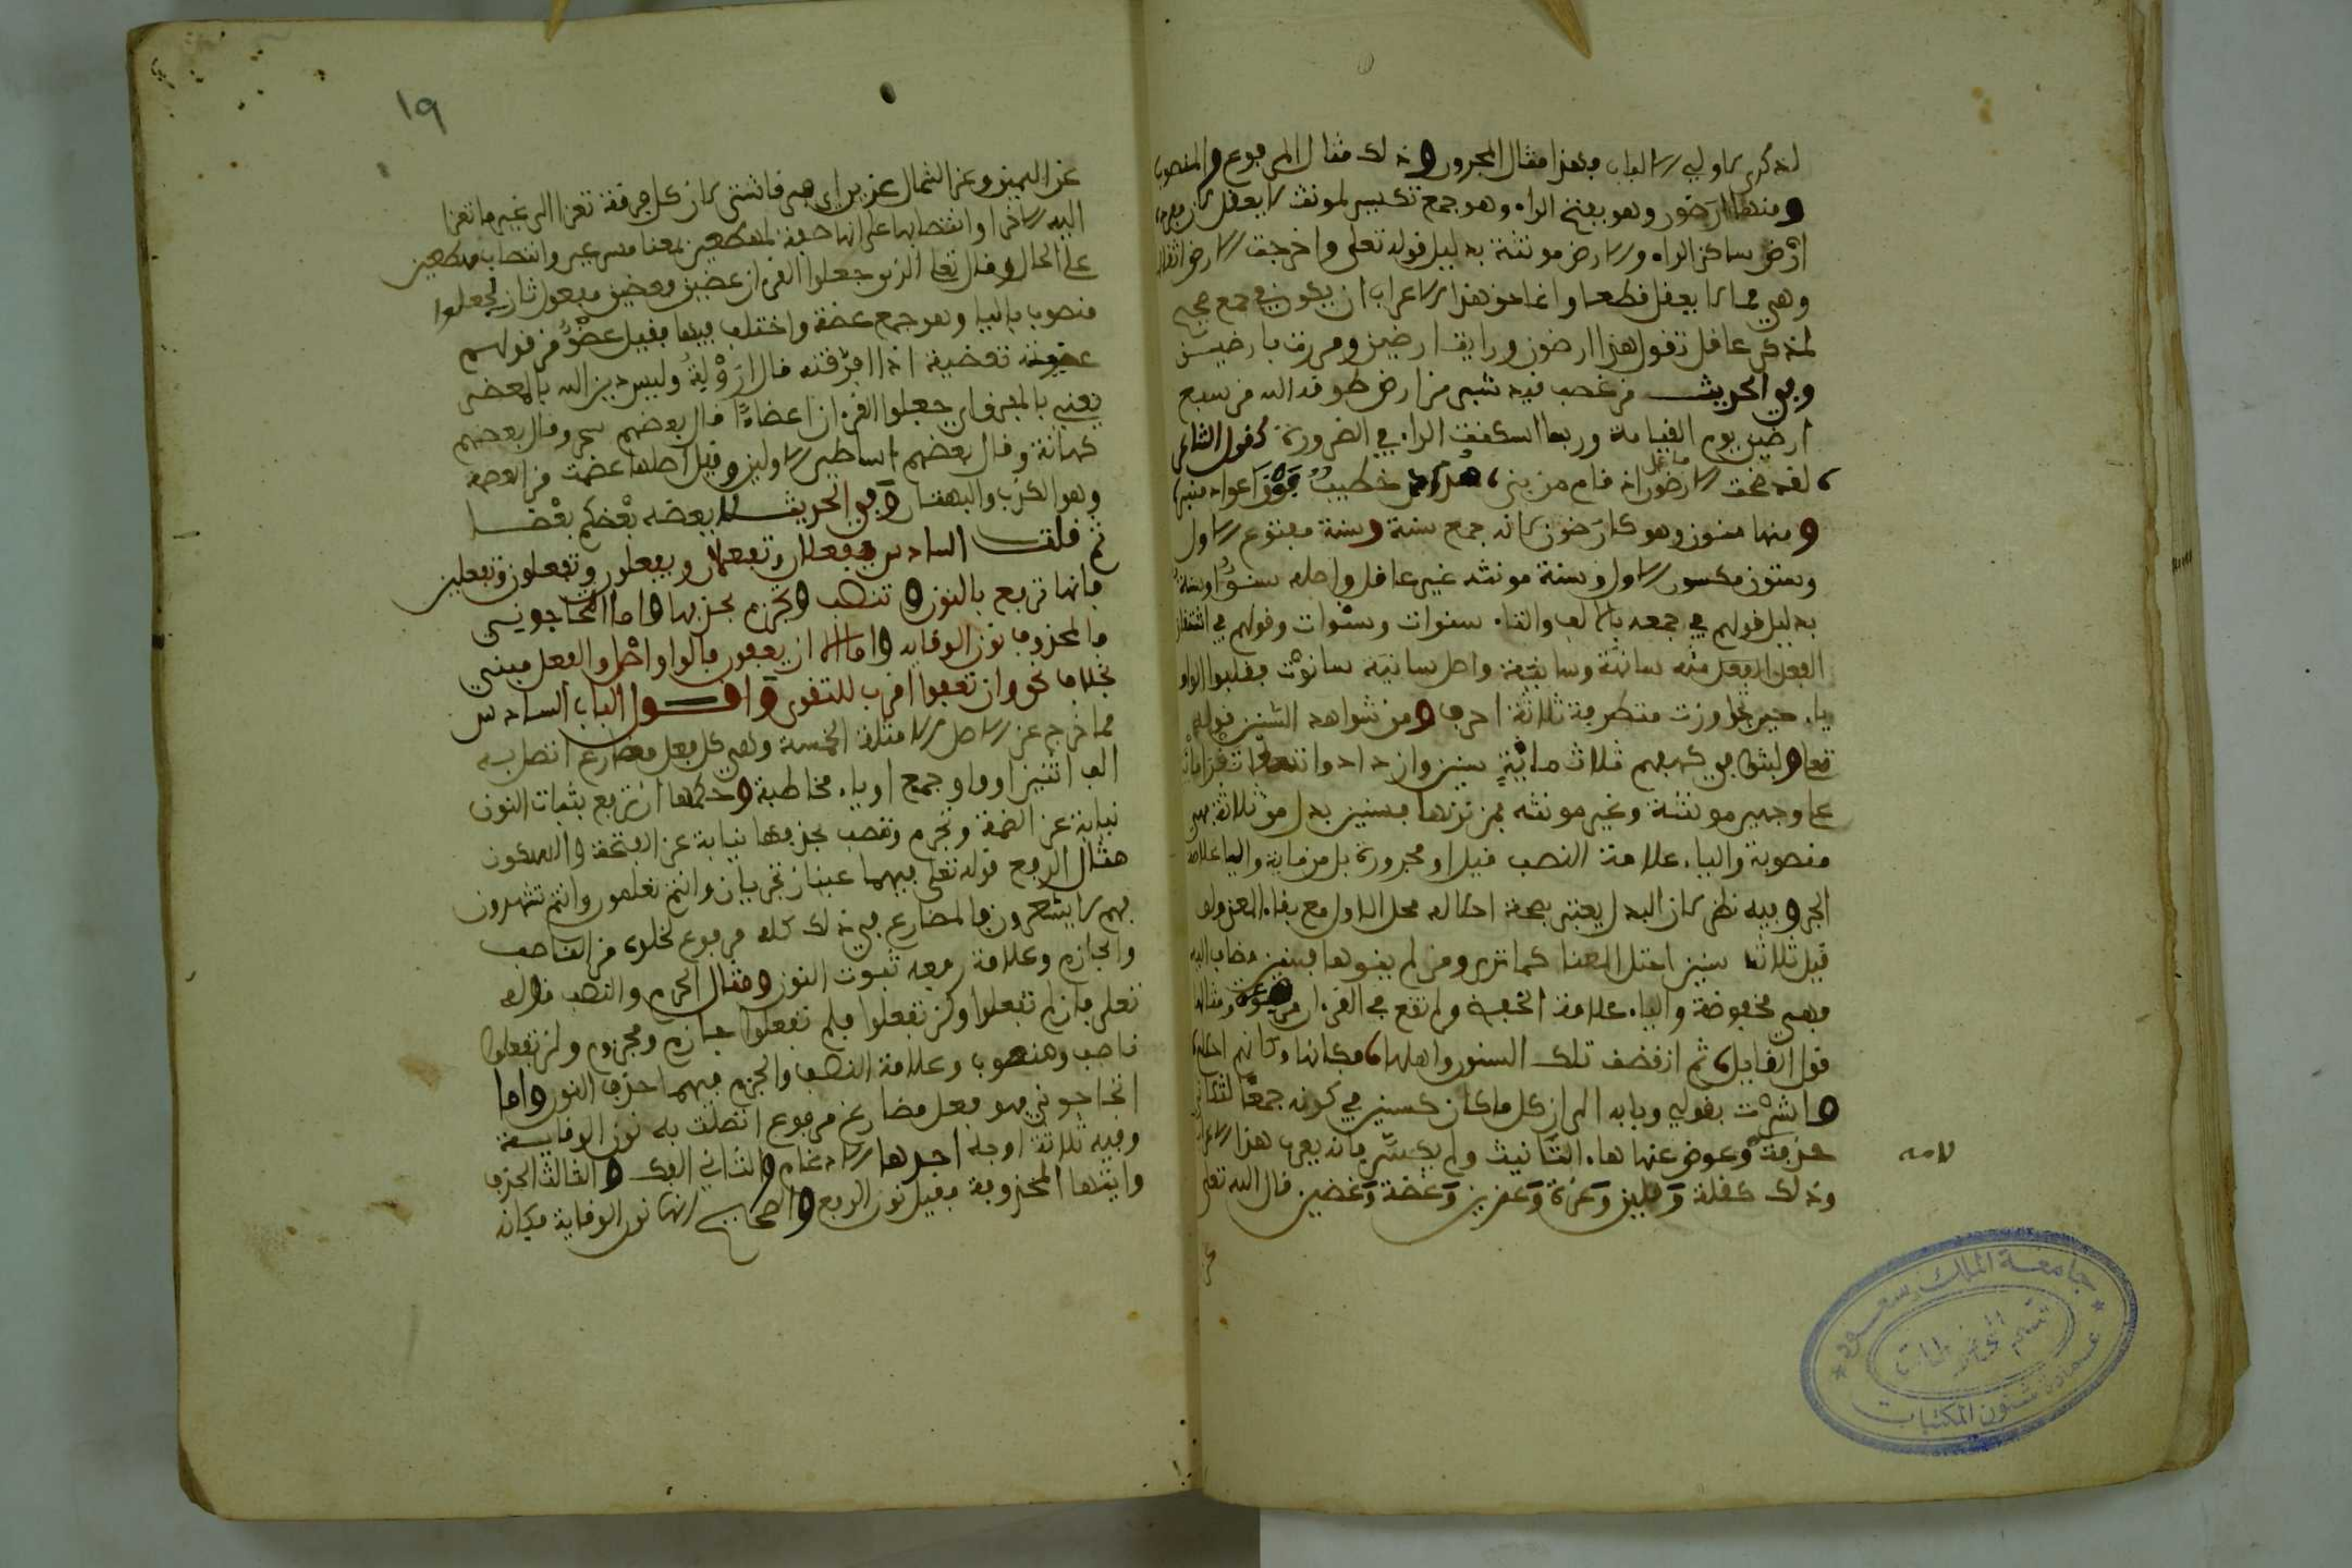 لذكرى لاولي الالباب فهذا مثال المجرور وذلك مثال المرفوع والمنصوب
ومنها ارضون وهو بفتح الراء وهو جمع تكسير لمونث لا يعقل لان مفرده
ارْض ساكن الراء والارض مونثة بدليل قوله تعلى واخرجت الارض اثقالها
وهي مما لا يعقل قطعا وانما حق هذا الاعراب ان يكون في جمع
لمذكر عاقل تقول هذا ارضون ورايت ارضين ومررت بارضين
وفي الحديث من غصب قيد شبر من ارض طوقه الله من سبع
ارضين يوم القيامة وربما اسكنت الراء في الضرورة كقول الشاعر
لقد ضجت الارضون اذ قام من بني هداد خطيب فوق اعواد منبر
ومنها سنون وهو كارضون لانه جمع سنة وسنة مفتوح الاول
وسنون مكسور الاول وسنة مونثه غير عاقل واصله سنوٌ او سنه
بدليل قولهم في جمعه بالالف والتاء سنوات وسنهات وقولهم في اشتقاق
الفعل منه سانهت وسانيت واصل سانيت سانوْت فقلبوا الواو
ياء حين تجاوزت متطرفة ثلاثة احرف ومن شواهد السنين قوله
تعلى ولبثوا في كهفهم ثلاث مائةٍ سنين وازدادوا تسعا تقرا مائة
على وجهين مونثة وغير مونثه فمن نونها فسنين بدل من ثلاث فهي
منصوبة والياء علامة النصب قيل او مجرورة بدل من مائة والياء علامة
الجر وفيه نظر لان البدل يعتبر بصحة احلاله محل الاول مع بقاء المعنى ولو
قيل ثلاث سنين اختل المعنا كما ترى ومن لم ينونها فسنين مضاف اليه
فهي مخفوضة والياء علامة الخفض ولم تقع في القران مرفوعة ومثالها
قول القايل ثم انقضت تلك السنون واهلها فكانها وكانهم احلام
واشرت بقولي وبابه الى ان كل ما كان كسنين في كونه جمعًا لثلاثي
حذفت وعوض عنها هاء التانيث ولم يكسّر فانه يعرب هذا الاعراب
لامه
وذلك كقلة وقلين وعزة وعزين وعضة وعضين قال الله تعلى
عن
١٩
عن اليمين وعن الشمال عزين اي هي فرقا شتى لان كل فرقة تعزا الى غير ما تعزا
اليه الاخرا وانتصابها على انها صفة لمهطعين بمعنا مسرعين وانتصاب مهطعين
على الحال وقال تعلى الذين جعلوا القرءان عضين فعضين مفعول ثان لجعلوا
منصوب بالياء وهو جمع عضة واختلف فيها فقيل عضْوٌ من قولهم
عضيته تعضية اذا فرّقته قال رؤبة وليس دين الله بالمعضى
يعني بالمفرق اي جعلوا القرءان اعضاءً قال بعضهم سحر وقال بعضهم
كهانة وقال بعضهم اساطير الاولين وقيل اصلها عضهة من العضه
وهو الكذب والبهتان وفي الحديث لا يعضه بعْضكم بعْضا
ثم قلت السادس يفعلان وتفعلان ويفعلون وتفعلون وتفعلين
فانها ترفع بالنون وتنصب وتجزم بحذفها واما اتحاجوني
فالمحذوف نون الوقايه واما الا ان يعفون فالواو اصل والفعل مبني
بخلاف نحو وان تعفوا اقرب للتقوى واقول الباب السادس
مما خرج عن الاصل الامثلة الخمسة وهي كل فعل مضارع اتصل به
الف اثنين او واو جمع او ياء مخاطبة وحكمها ان ترفع بثبات النون
نيابة عن الضمة وتجزم وتنصب بحذفها نيابة عن الفتحة والسكون
مثال الرفع قوله تعلى فيهما عينان تجريان وانتم تعلمون وانتم تشهدون
فهم لا يشعرون فالمضارع في ذلك كله مرفوع لخلوه من الناصب
والجازم وعلامة رفعه ثبوت النون ومثال الجزم والنصب قوله
تعلى فان لم تفعلوا ولن تفعلوا فلم تفعلوا جازم ومجزوم ولن تفعلوا
ناصب ومنصوب وعلامة النصب والجزم فيهما حذف النون واما
اتحاجوني فهو فعل مضارع مرفوع اتصلت به نون الوقاية
وفيه ثلاثة اوجه احدها الادغام والثاني الفك والثالث الحذف
وايتها المحذوفة فقيل نون الرفع والصحيح انها نون الوقاية فكانه
جامعة الملك سعود
قسم المخطوطات
عمادة شئون المكتبات